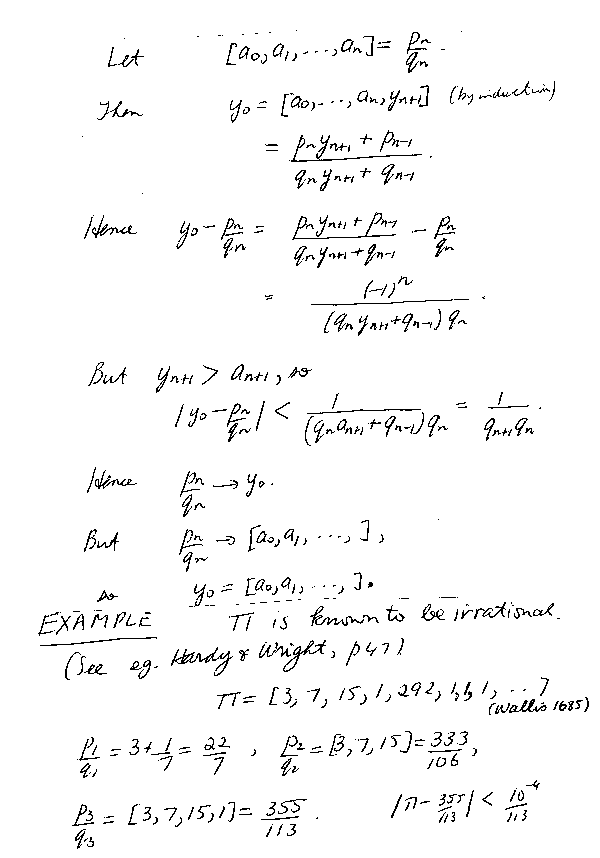 Let [a₀, a₁, ..., aₙ] = pₙ/qₙ.
Then y₀ = [a₀, ..., aₙ, yₙ₊₁] (by induction)
= (pₙyₙ₊₁ + pₙ₋₁)/(qₙyₙ₊₁ + qₙ₋₁).
Hence y₀ - pₙ/qₙ = (pₙyₙ₊₁ + pₙ₋₁)/(qₙyₙ₊₁ + qₙ₋₁) - pₙ/qₙ
= (-1)ⁿ/((qₙyₙ₊₁ + qₙ₋₁)qₙ).
But yₙ₊₁ > aₙ₊₁, so
|y₀ - pₙ/qₙ| < 1/((qₙaₙ₊₁ + qₙ₋₁)qₙ) = 1/(qₙ₊₁qₙ).
Hence pₙ/qₙ → y₀.
But pₙ/qₙ → [a₀, a₁, ..., ],
so y₀ = [a₀, a₁, ..., ].
EXAMPLE π is known to be irrational.
(See eg. Hardy & Wright, p47)
π = [3, 7, 15, 1, 292, 1, 1, 1, ...]
(Wallis 1685)
p₁/q₁ = 3 + 1/7 = 22/7, p₂/q₂ = [3, 7, 15] = 333/106,
p₃/q₃ = [3, 7, 15, 1] = 355/113. |π - 355/113| < 10⁻⁴/113